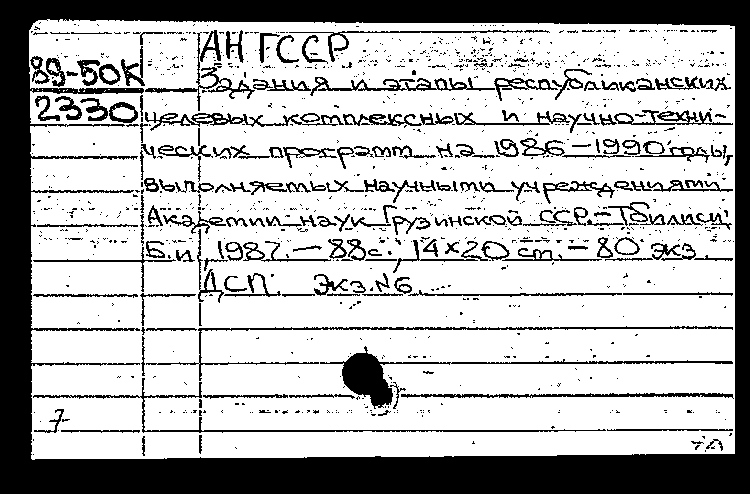 АН ГССР
89-50К Задания и этапы республиканских
2330 целевых комплексных и научно-техни-
ческих программ на 1986-1990 годы,
выполняемых научными учреждениями
Академии наук Грузинской ССР.-Тбилиси:
Б.и., 1987.-88с.; 14×20 см.-80 экз.
ДСП. Экз.№6.
7